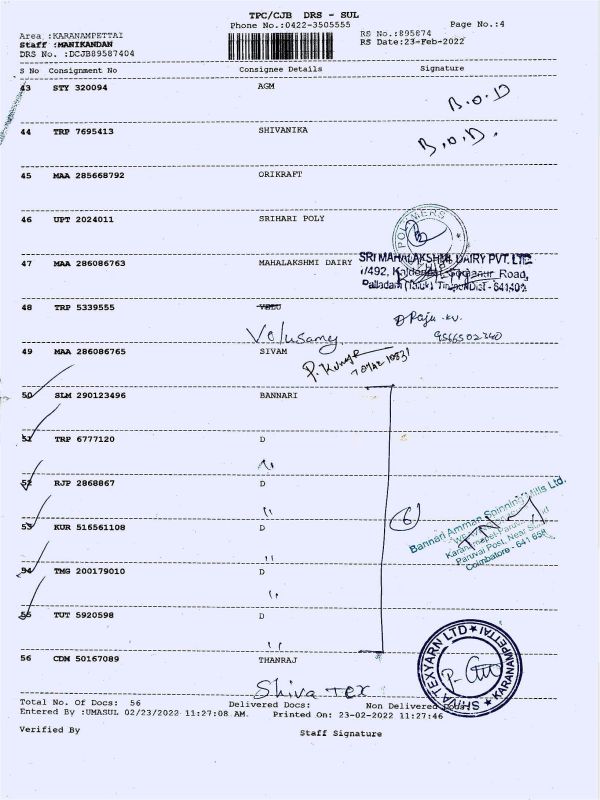 TPC/CJB DRS - SUL
Phone No.:0422-3505555 Page No.:4
Area :KARANAMPETTAI RS No.:895874
Staff :MANIKANDAN RS Date:23-Feb-2022
DRS No. :DCJB89587404
S No Consignment No Consignee Details Signature
43 STY 320094 AGM
B.O.D
44 TRP 7695413 SHIVANIKA
B.O.D.
45 MAA 285668792 ORIKRAFT
46 UPT 2024011 SRIHARI POLY
POLYMERS
47 MAA 286086763 MAHALAKSHMI DAIRY
SRI MAHALAKSHMI DAIRY PVT. LTD
Road,
Palladam (Taluk) Tirupur Dist - 641402
48 TRP 5339555 VELU
Velusamy
Raju
49 MAA 286086765 SIVAM
50 SLM 290123496 BANNARI
51 TRP 6777120 D
52 RJP 2868867 D
53 KUR 516561108 D
6
Bannari Amman Spinning Mills Ltd.
Paruvai Post, Near
Coimbatore - 641 658
54 TMG 200179010 D
55 TUT 5920598 D
56 CDM 50167089 THANRAJ
Shiva Tex
SHIVA TEXYARN LTD ★ KARANAMPETTAI ★
Total No. Of Docs: 56 Delivered Docs: Non Delivered Docs:
Entered By :UMASUL 02/23/2022 11:27:08 AM. Printed On: 23-02-2022 11:27:46
Verified By
Staff Signature